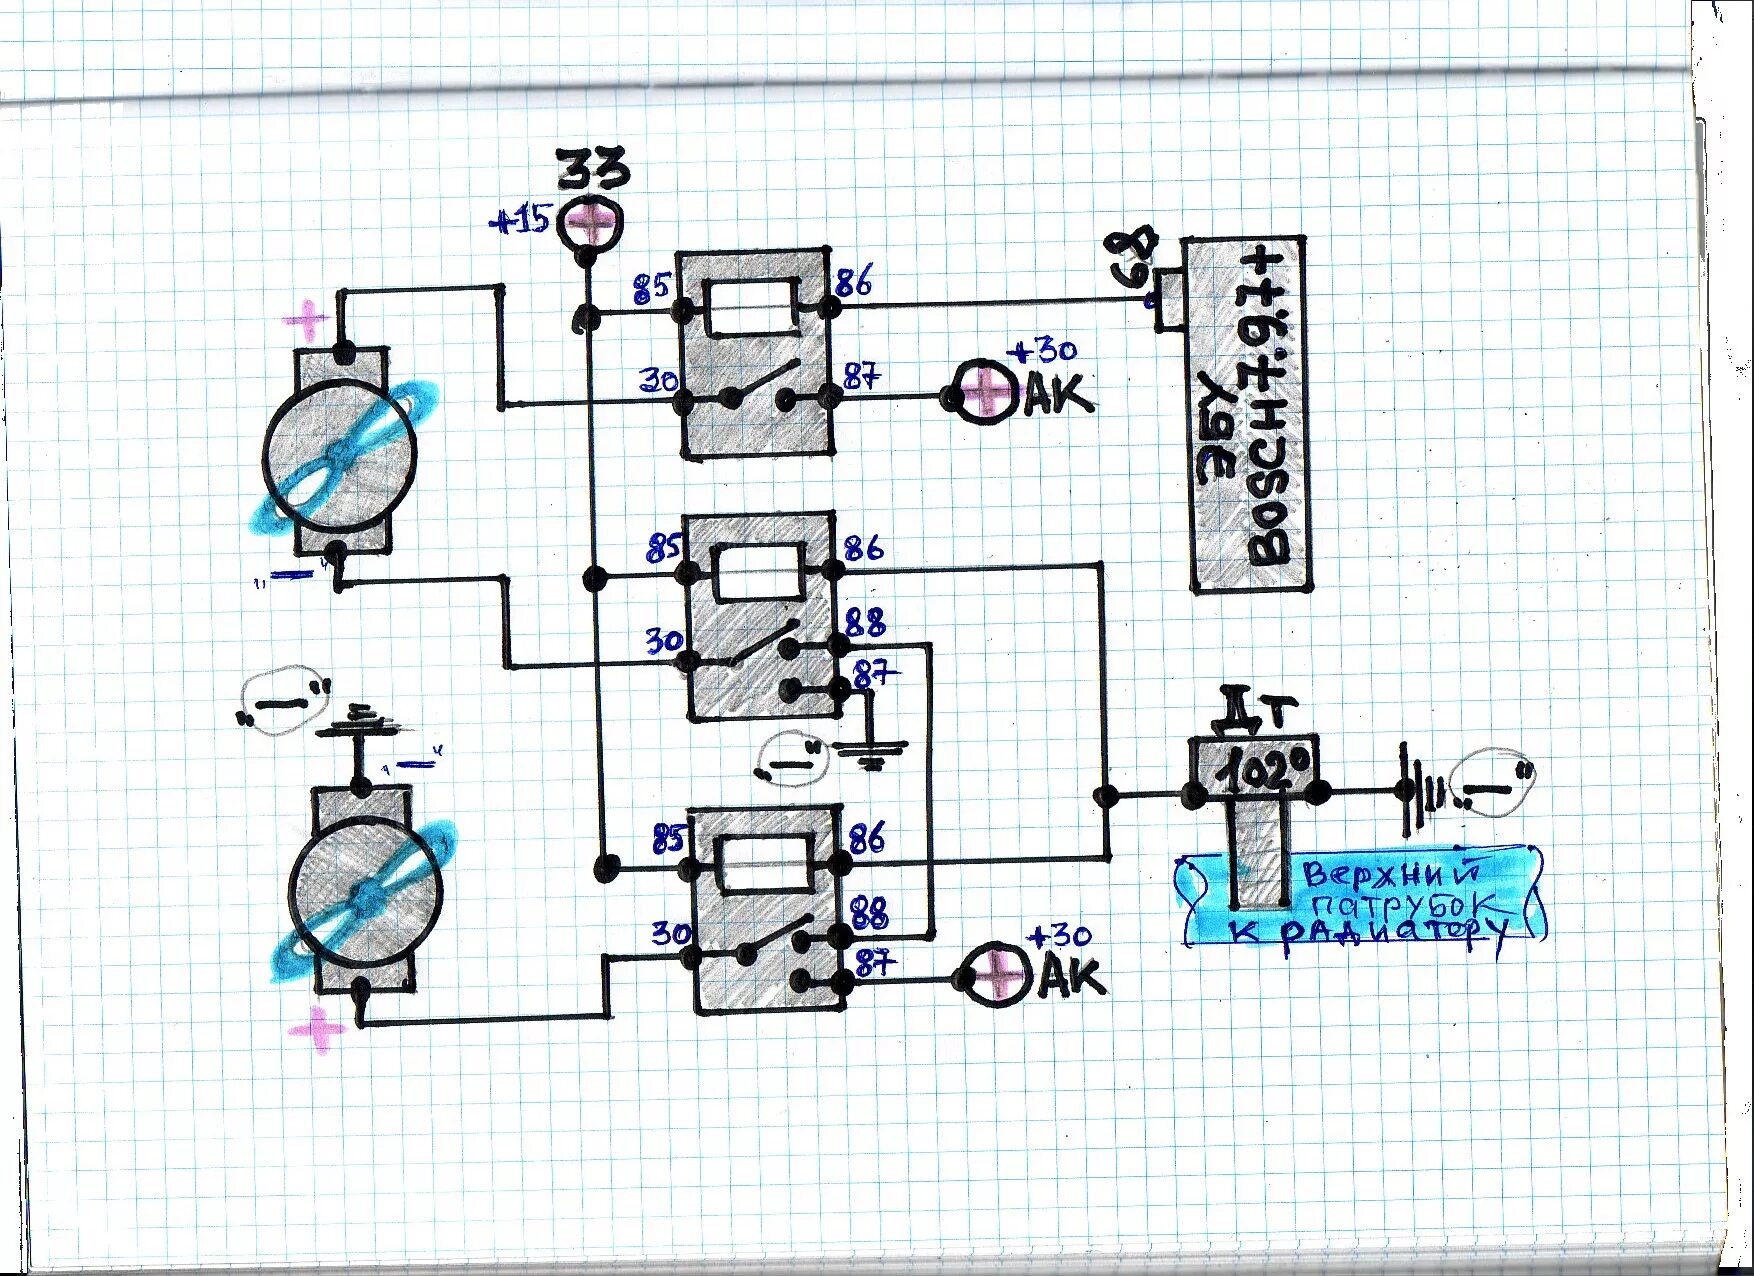 33
+15
85
86
30
87
+30
АК
68
ЭБУ
BOSCH 7.9.7+
+
„—"
85
86
88
30
87
„—"
„—"
„—"
85
86
88
30
87
+30
АК
+
ДТ
102°
„—"
Верхний
патрубок
к радиатеру